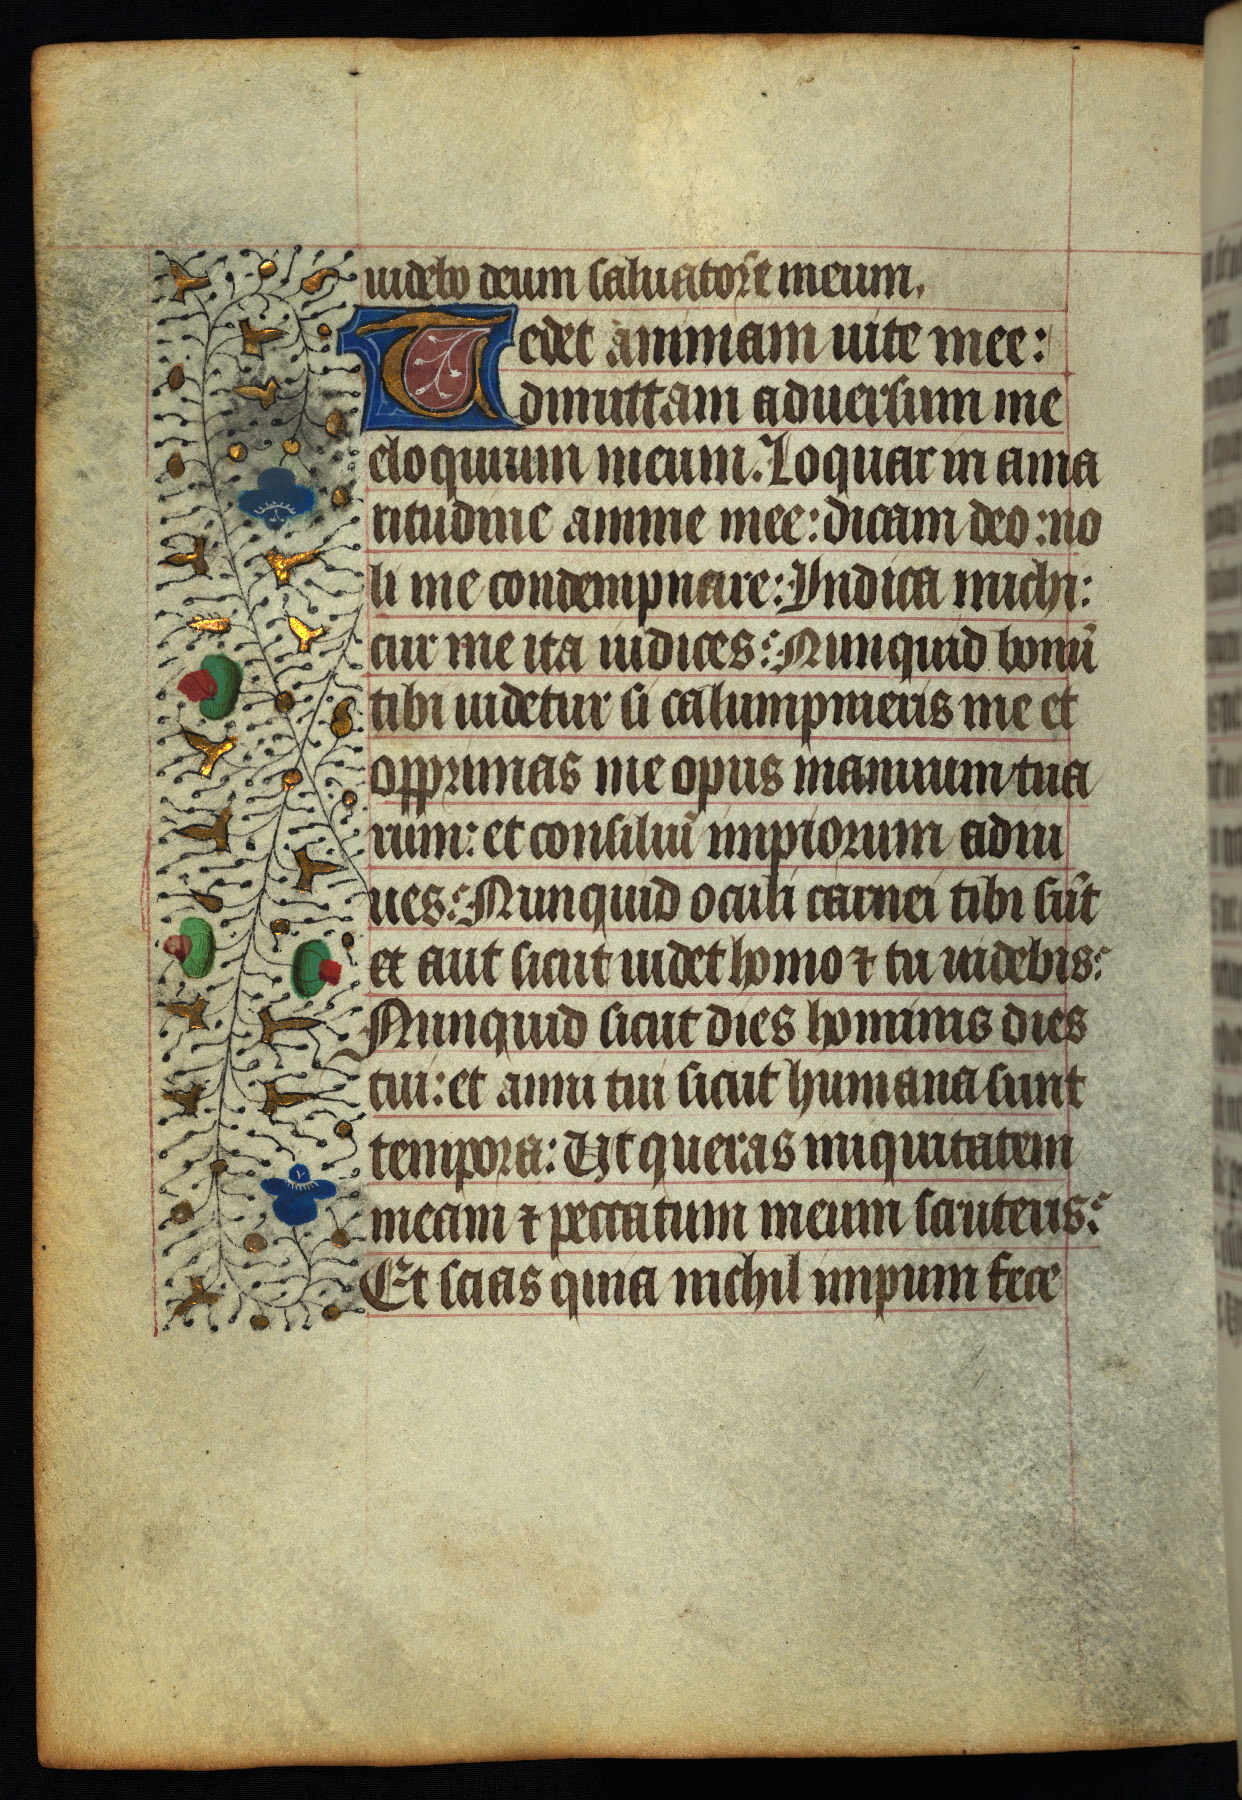 uidebo deum saluatorē meum.
Tedet animam uite mee:
dimittam aduersum me
eloquium meum. Loquar in ama
ritudine anime mee: dicam deo: no
li me condempnare: Indica michi:
cur me ita iudices: Nunquid bonū
tibi uidetur si calumpnieris me et
opprimas me opus manuum tua
rum: et consiliū impiorum adiu
ues: Nunquid oculi carnei tibi sūt
et aut sicut uidet homo ⁊ tu uidebis:
Nunquid sicut dies hominis dies
tui: et anni tui sicut humana sunt
tempora: Ut queras iniquitatem
meam ⁊ peccatum meum scruteris:
Et scias quia nichil impium fece